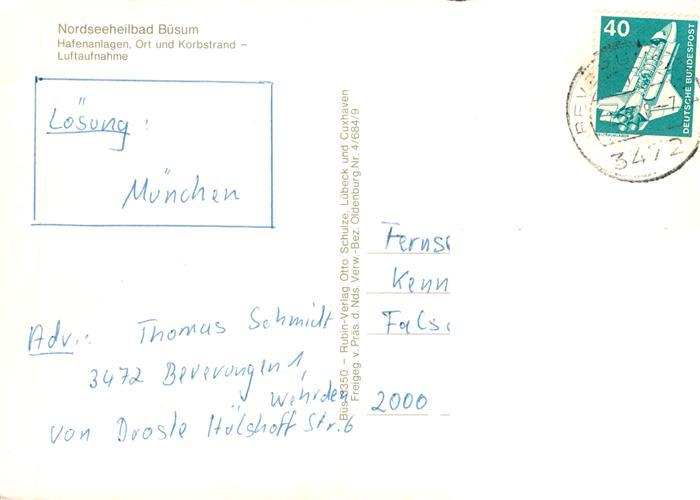 Nordseeheilbad Büsum
Hafenanlagen, Ort und Korbstrand –
Luftaufnahme
Lösung:
München
Adr.: Thomas Schmidt
3472 Beverungen 1,
Wehrden
von Droste Hülshoff Str. 6
Büs 8350 – Rubin-Verlag Otto Schulze, Lübeck und Cuxhaven
Freigeg. v. Präs. d. Nds. Verw.-Bez. Oldenburg Nr. 4/684/9
40
DEUTSCHE BUNDESPOST
3472
Ferns
Kenn
Fals
2000